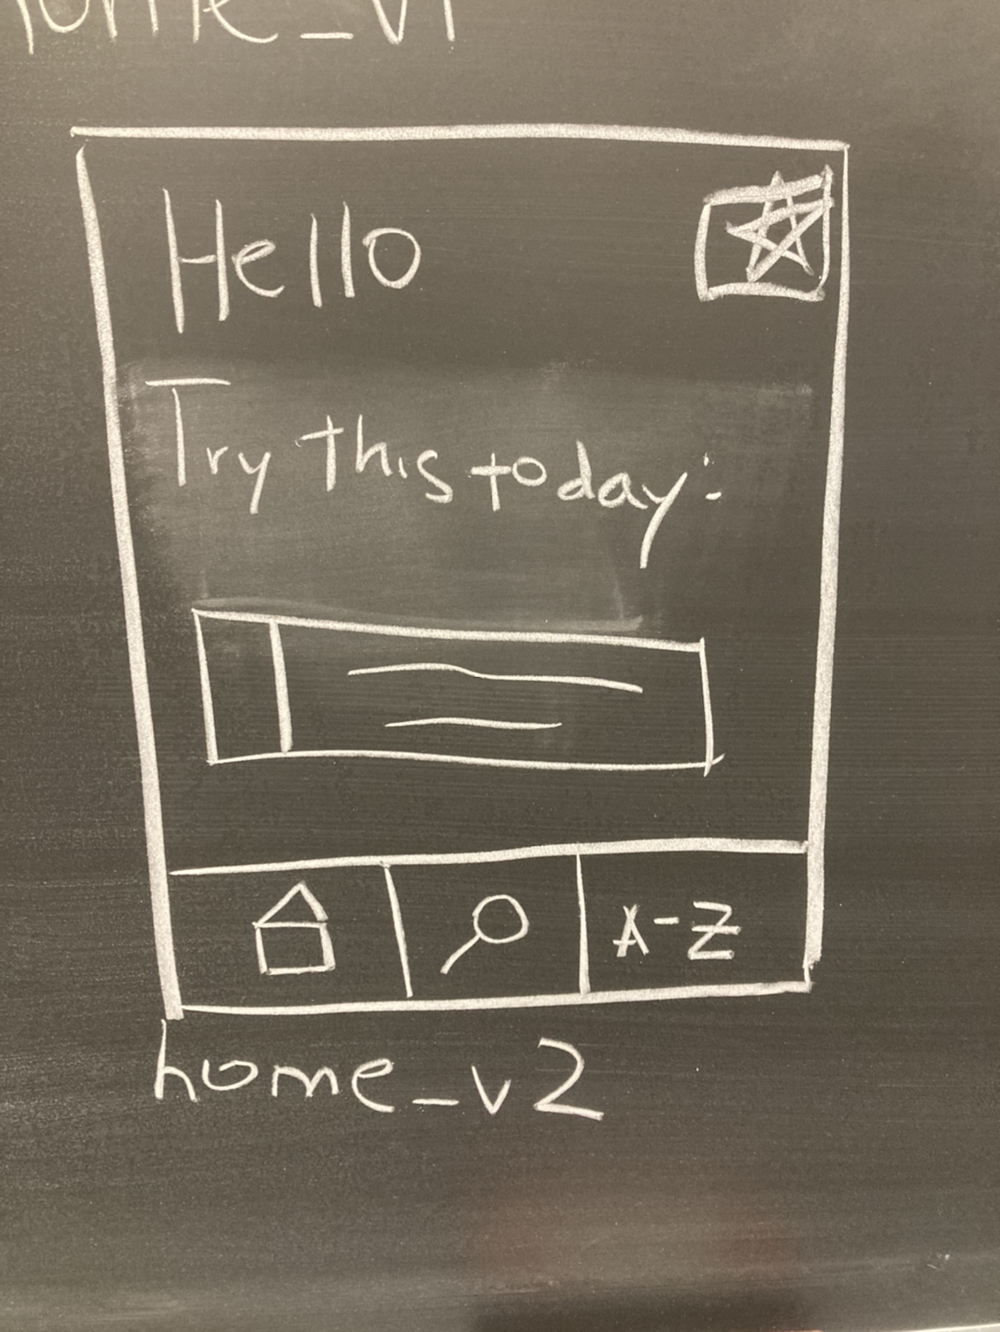 home_v1
Hello
Try this today:
A-Z
home_v2